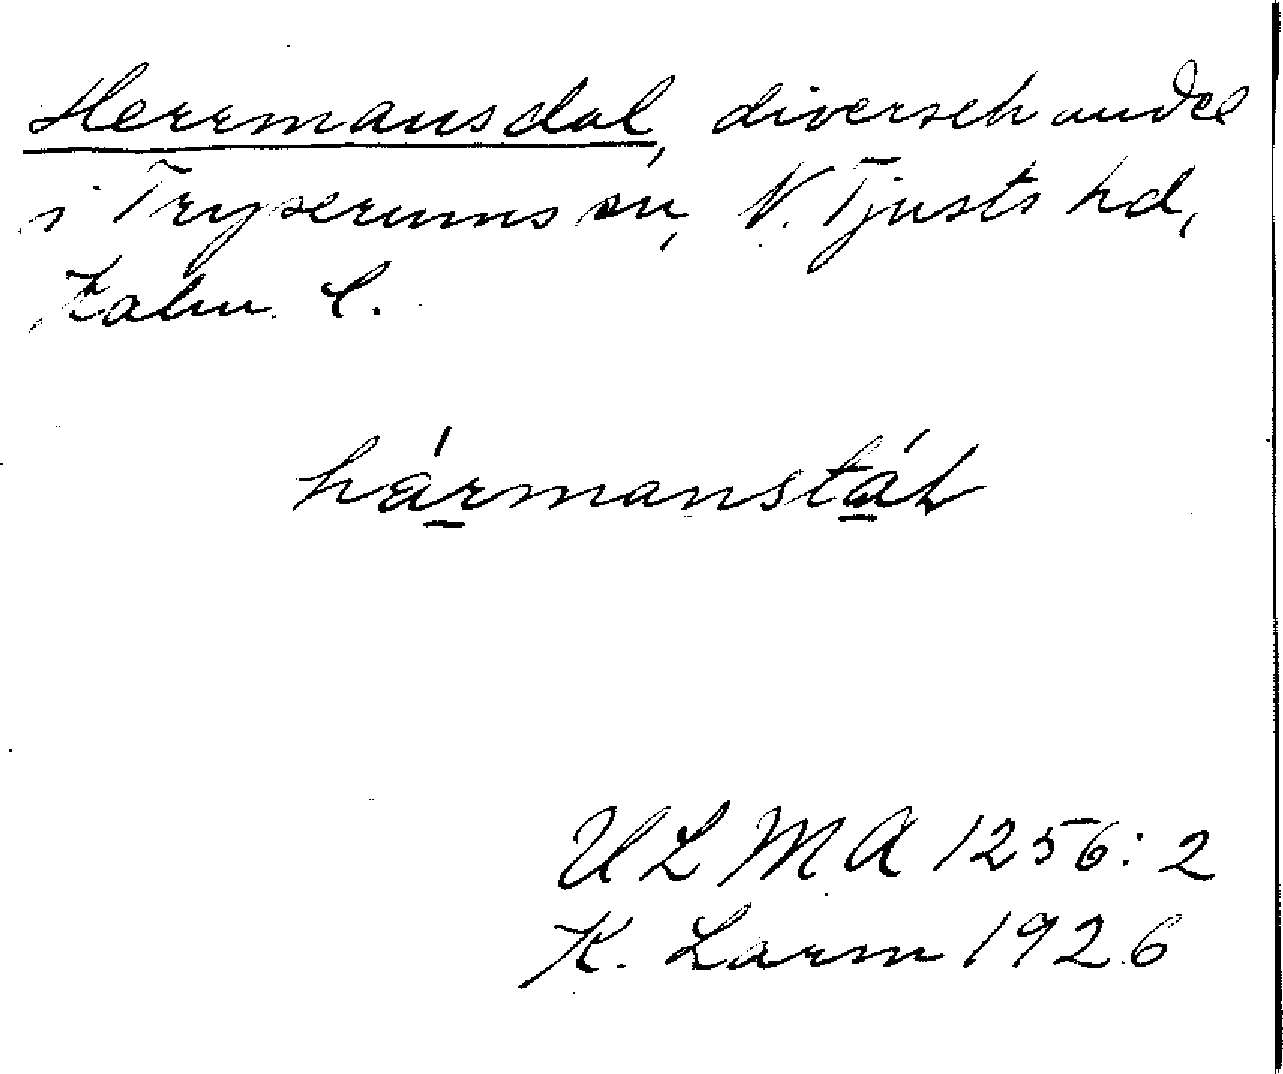 Herrmansdal, diversehandel
i Tryserums sn, N. Tjusts hd,
Kalm. l.
härmanstáL
ULMA 1256:2
K. Larm 1926